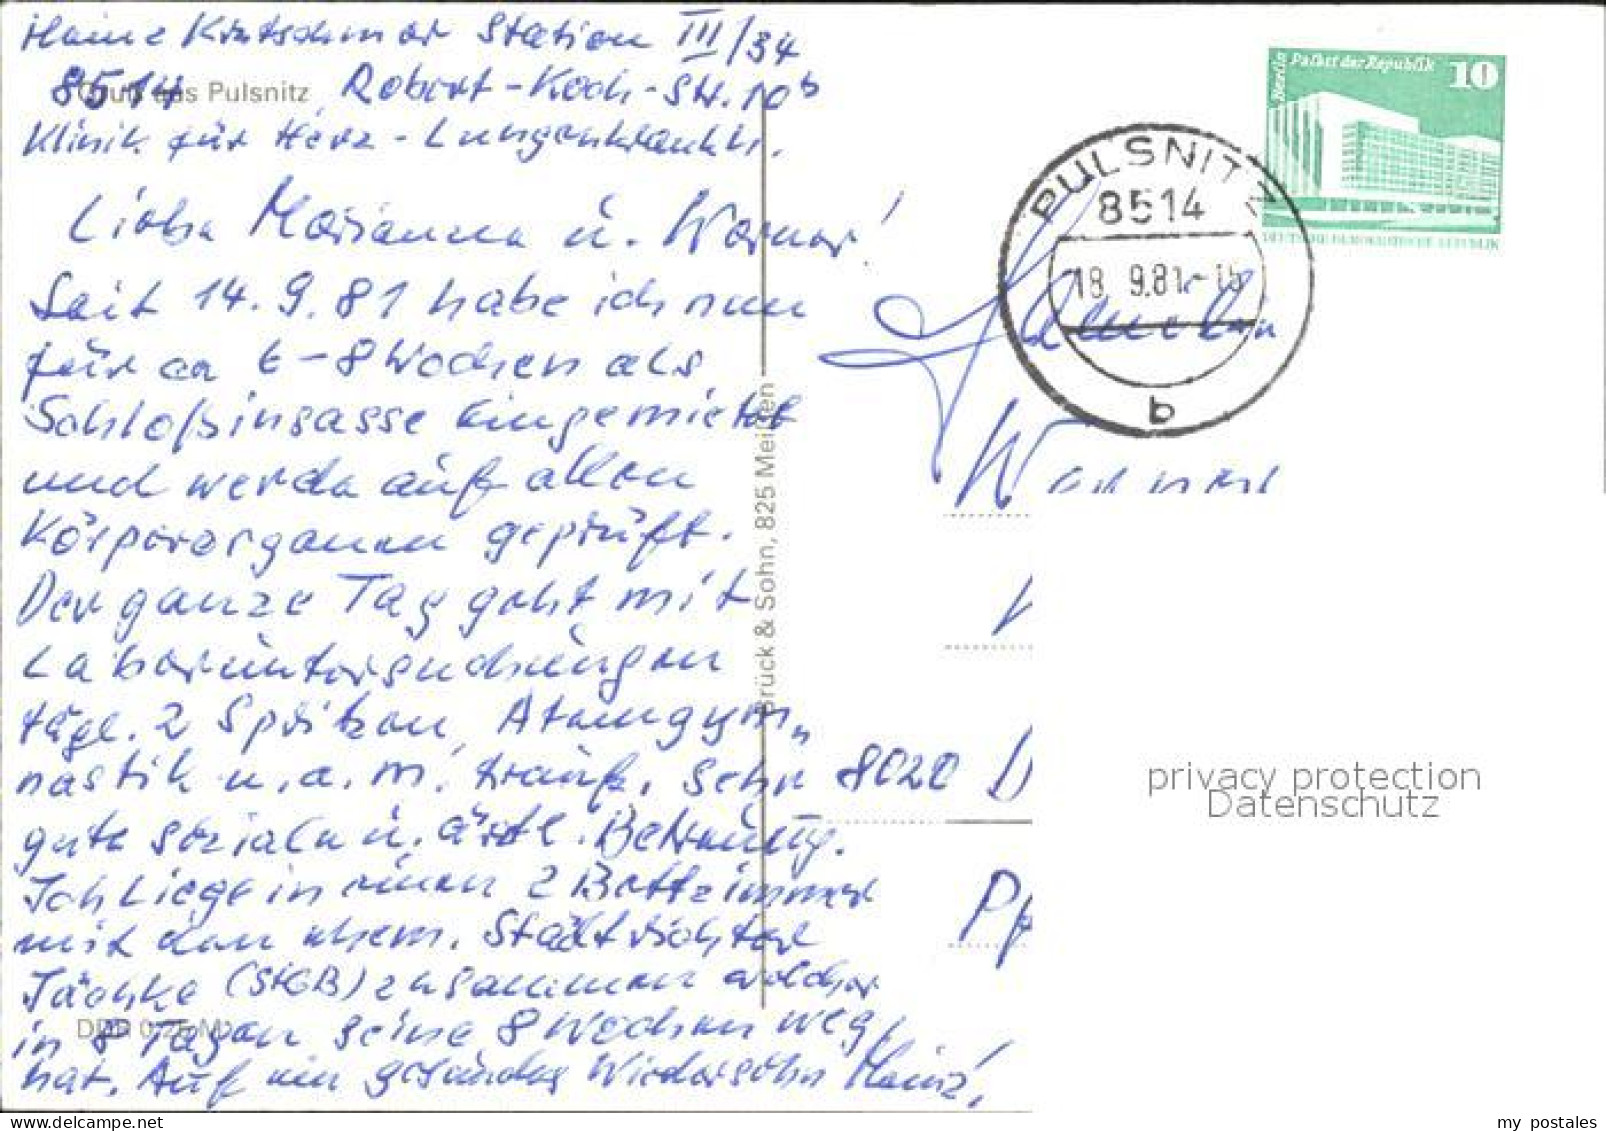 Heinz Kretschmar Station III/34
8514 Robert-Koch-Str. 10b
Gruß aus Pulsnitz
Klinik für Herz-Lungenkrankh.
Liebe Marianne u. Werner!
Seit 14.9.81 habe ich nun
für ca 6-8 Wochen als
Schloßinsasse eingemietet
und werde auf allen
Körperorganen geprüft.
Der ganze Tag geht mit
Laboruntersuchungen
tägl. 2 Spritzen, Atemgym-
nastik u.a.m. drauf. Sehr
gute soziale u. ärztl. Betreuung.
Ich liege in einem 2 Bettzimmer
mit dem ehem. Stadtrichter
Jäschke (StGB) zusammen welcher
in 8 Tagen seine 8 Wochen weg
hat. Auf ein gesundes Wiedersehn Heinz!
DDR 0,25 M
Brück & Sohn, 825 Meißen
Berlin Palast der Republik 10
DEUTSCHE DEMOKRATISCHE REPUBLIK
PULSNITZ
8514
18.9.81-15
b
Werner
8020 D
privacy protection
Datenschutz
my postales